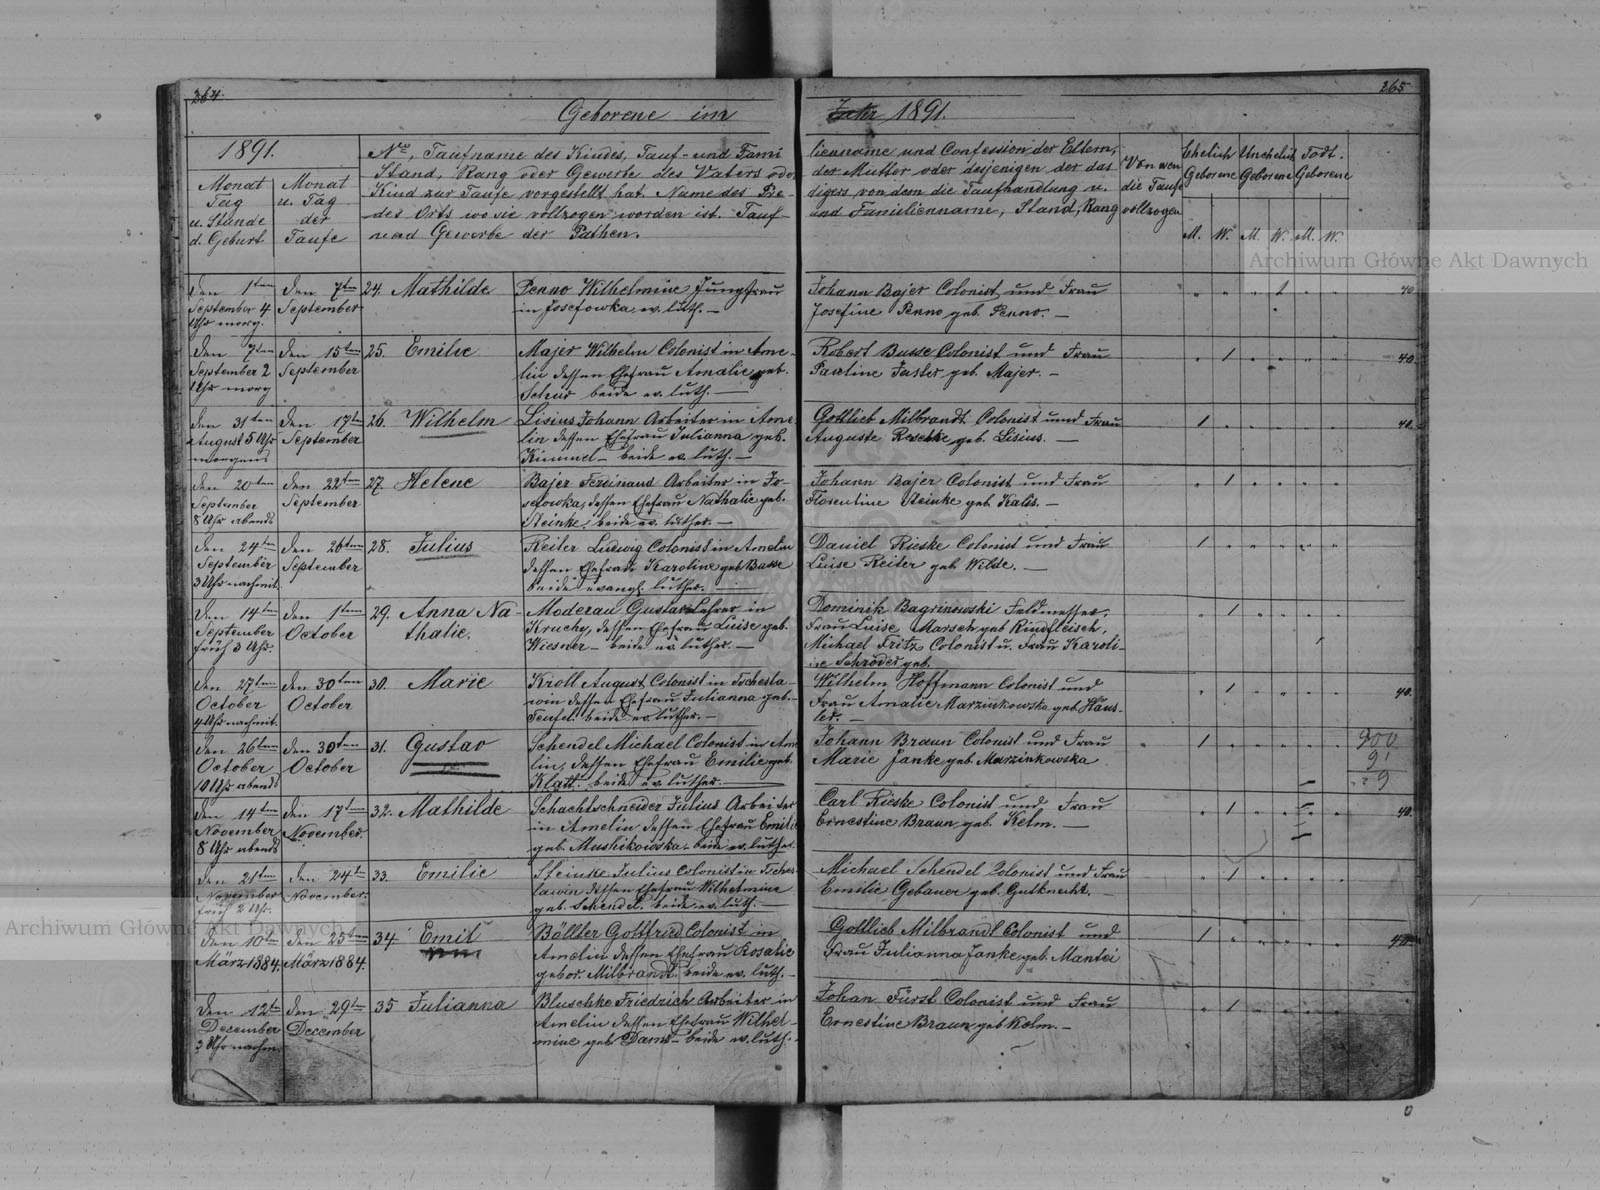 264.
265
Geborene im Jahr 1891.
1891.
Monat
Tag
u. Stunde
d. Geburt
Monat
u. Tag
der
Taufe
No, Taufname des Kindes, Tauf- und Fami
Stand, Rang oder Gewerbe des Vaters oder
Kind zur Taufe vorgestellt hat. Name des Pre-
des Orts wo sie vollzogen worden ist. Tauf-
und Gewerbe der Pathen.
lienname und Confession der Eltern,
der Mutter oder desjenigen der das
digers, von dem die Taufhandlung u.
und Familienname, Stand, Rang
Von wem
die Taufe
vollzogen
Ehelich
Geborene
Unehelich
Geborene
Todt-
Geborene
M. W. M. W. M. W.
Archiwum Główne Akt Dawnych
den 1ten
September 4
Uhr morg.
den 7ten
September
24. Mathilde
Penno Wilhelmine Jungfrau
in Josefowka, ev. luth. —
Johann Bajer Colonist und Frau
Josefine Penno geb. Penno. —
1
40
den 7ten
September 2
Uhr morg
den 15ten
September
25. Emilie
Majer Wilhelm Colonist in Ame-
lin dessen Ehefrau Amalie geb.
beide ev. luth. —
Robert Busse Colonist und Frau
Pauline Juster geb. Majer. —
1
40.
den 31ten
August 5 Uhr
morgens
den 17ten
September
26. Wilhelm
Lisius Johann Arbeiter in Ame
lin dessen Ehefrau Julianna geb.
Kimmel — beide ev. luth. —
Gottlieb Milbrandt Colonist und Frau
Auguste Reschke geb. Lisius. —
1
40.
den 20ten
September
8 Uhr abends
den 22ten
September
27. Helene
Bajer Ferdinand Arbeiter in Jo-
sefowka, dessen Ehefrau Nathalie geb.
Steinke, beide ev. luther. —
Johann Bajer Colonist und Frau
Florentine Steinke geb. Kalis. —
1
den 24ten
September
3 Uhr nachmit.
den 26ten
September
28. Julius
Reiter Ludwig Colonist in Amelin
dessen Ehefrau Karoline geb Busse
beide evangl. luther. —
Daniel Rieske Colonist und Frau
Luise Reiter geb Wilde. —
1
den 14ten
September
früh 3 Uhr.
den 1ten
October
29. Anna Na-
thalie.
Moderau Gustav Lehrer in
Kruchy, dessen Ehefrau Luise geb.
Wiesner — beide ev. luther. —
Dominik Bagrinowski Feldmesser,
Frau Luise Marsch geb Rindfleisch,
Michael Fritz Colonist u. Frau Karoli-
ne Schröder geb.
1
den 27ten
October
4 Uhr nachmit.
den 30ten
October
30. Marie
Kroll August Colonist in Tschesla-
win dessen Ehefrau Julianna geb.
Teufel. beide ev. luther. —
Wilhelm Hoffmann Colonist und
Frau Amalie Marzinkowska geb. Häus-
ler. —
1
40.
den 26ten
October
10 Uhr abends
den 30ten
October
31. Gustav
Schendel Michael Colonist in Ame
lin, dessen Ehefrau Emilie geb.
Klatt. beide ev. luther. —
Johann Braun Colonist und Frau
Marie Janke geb. Marzinkowska
1
91
den 14ten
November
8 Uhr abends
den 17ten
November.
32. Mathilde
Schachtschneider Julius Arbeiter
in Amelin dessen Ehefrau Emilie
geb. Mushikowska. beide ev. luther.
Carl Rieske Colonist und Frau
Ernestine Braun geb. Kelm. —
1
40.
den 21ten
November
früh 2 Uhr.
den 24ten
November.
33. Emilie
Steinke Julius Colonist in Tsches
lawin dessen Ehefrau Wilhelmine
geb. Schendel. beide ev. luth. —
Michael Schendel Colonist und Frau
Emilie Gebauer geb. Gutknecht. —
1
Archiwum Główne Akt Dawnych
den 10ten
März 1884.
den 25ten
März 1884.
34. Emil
Böllter Gottfried Colonist in
Amelin dessen Ehefrau Rosalie
gebor. Milbrandt. beide ev. luth. —
Gottlieb Milbrandt Colonist und
Frau Julianna Janke geb. Mantei
1
40.
den 12ten
December
3 Uhr nachm.
den 29ten
December
35 Julianna
Bluschke Friedrich Arbeiter in
Amelin dessen Ehefrau Wilhel-
mine geb. Dams — beide ev. luth. —
Johan Fürst Colonist und Frau
Ernestine Braun geb Kolm. —
1